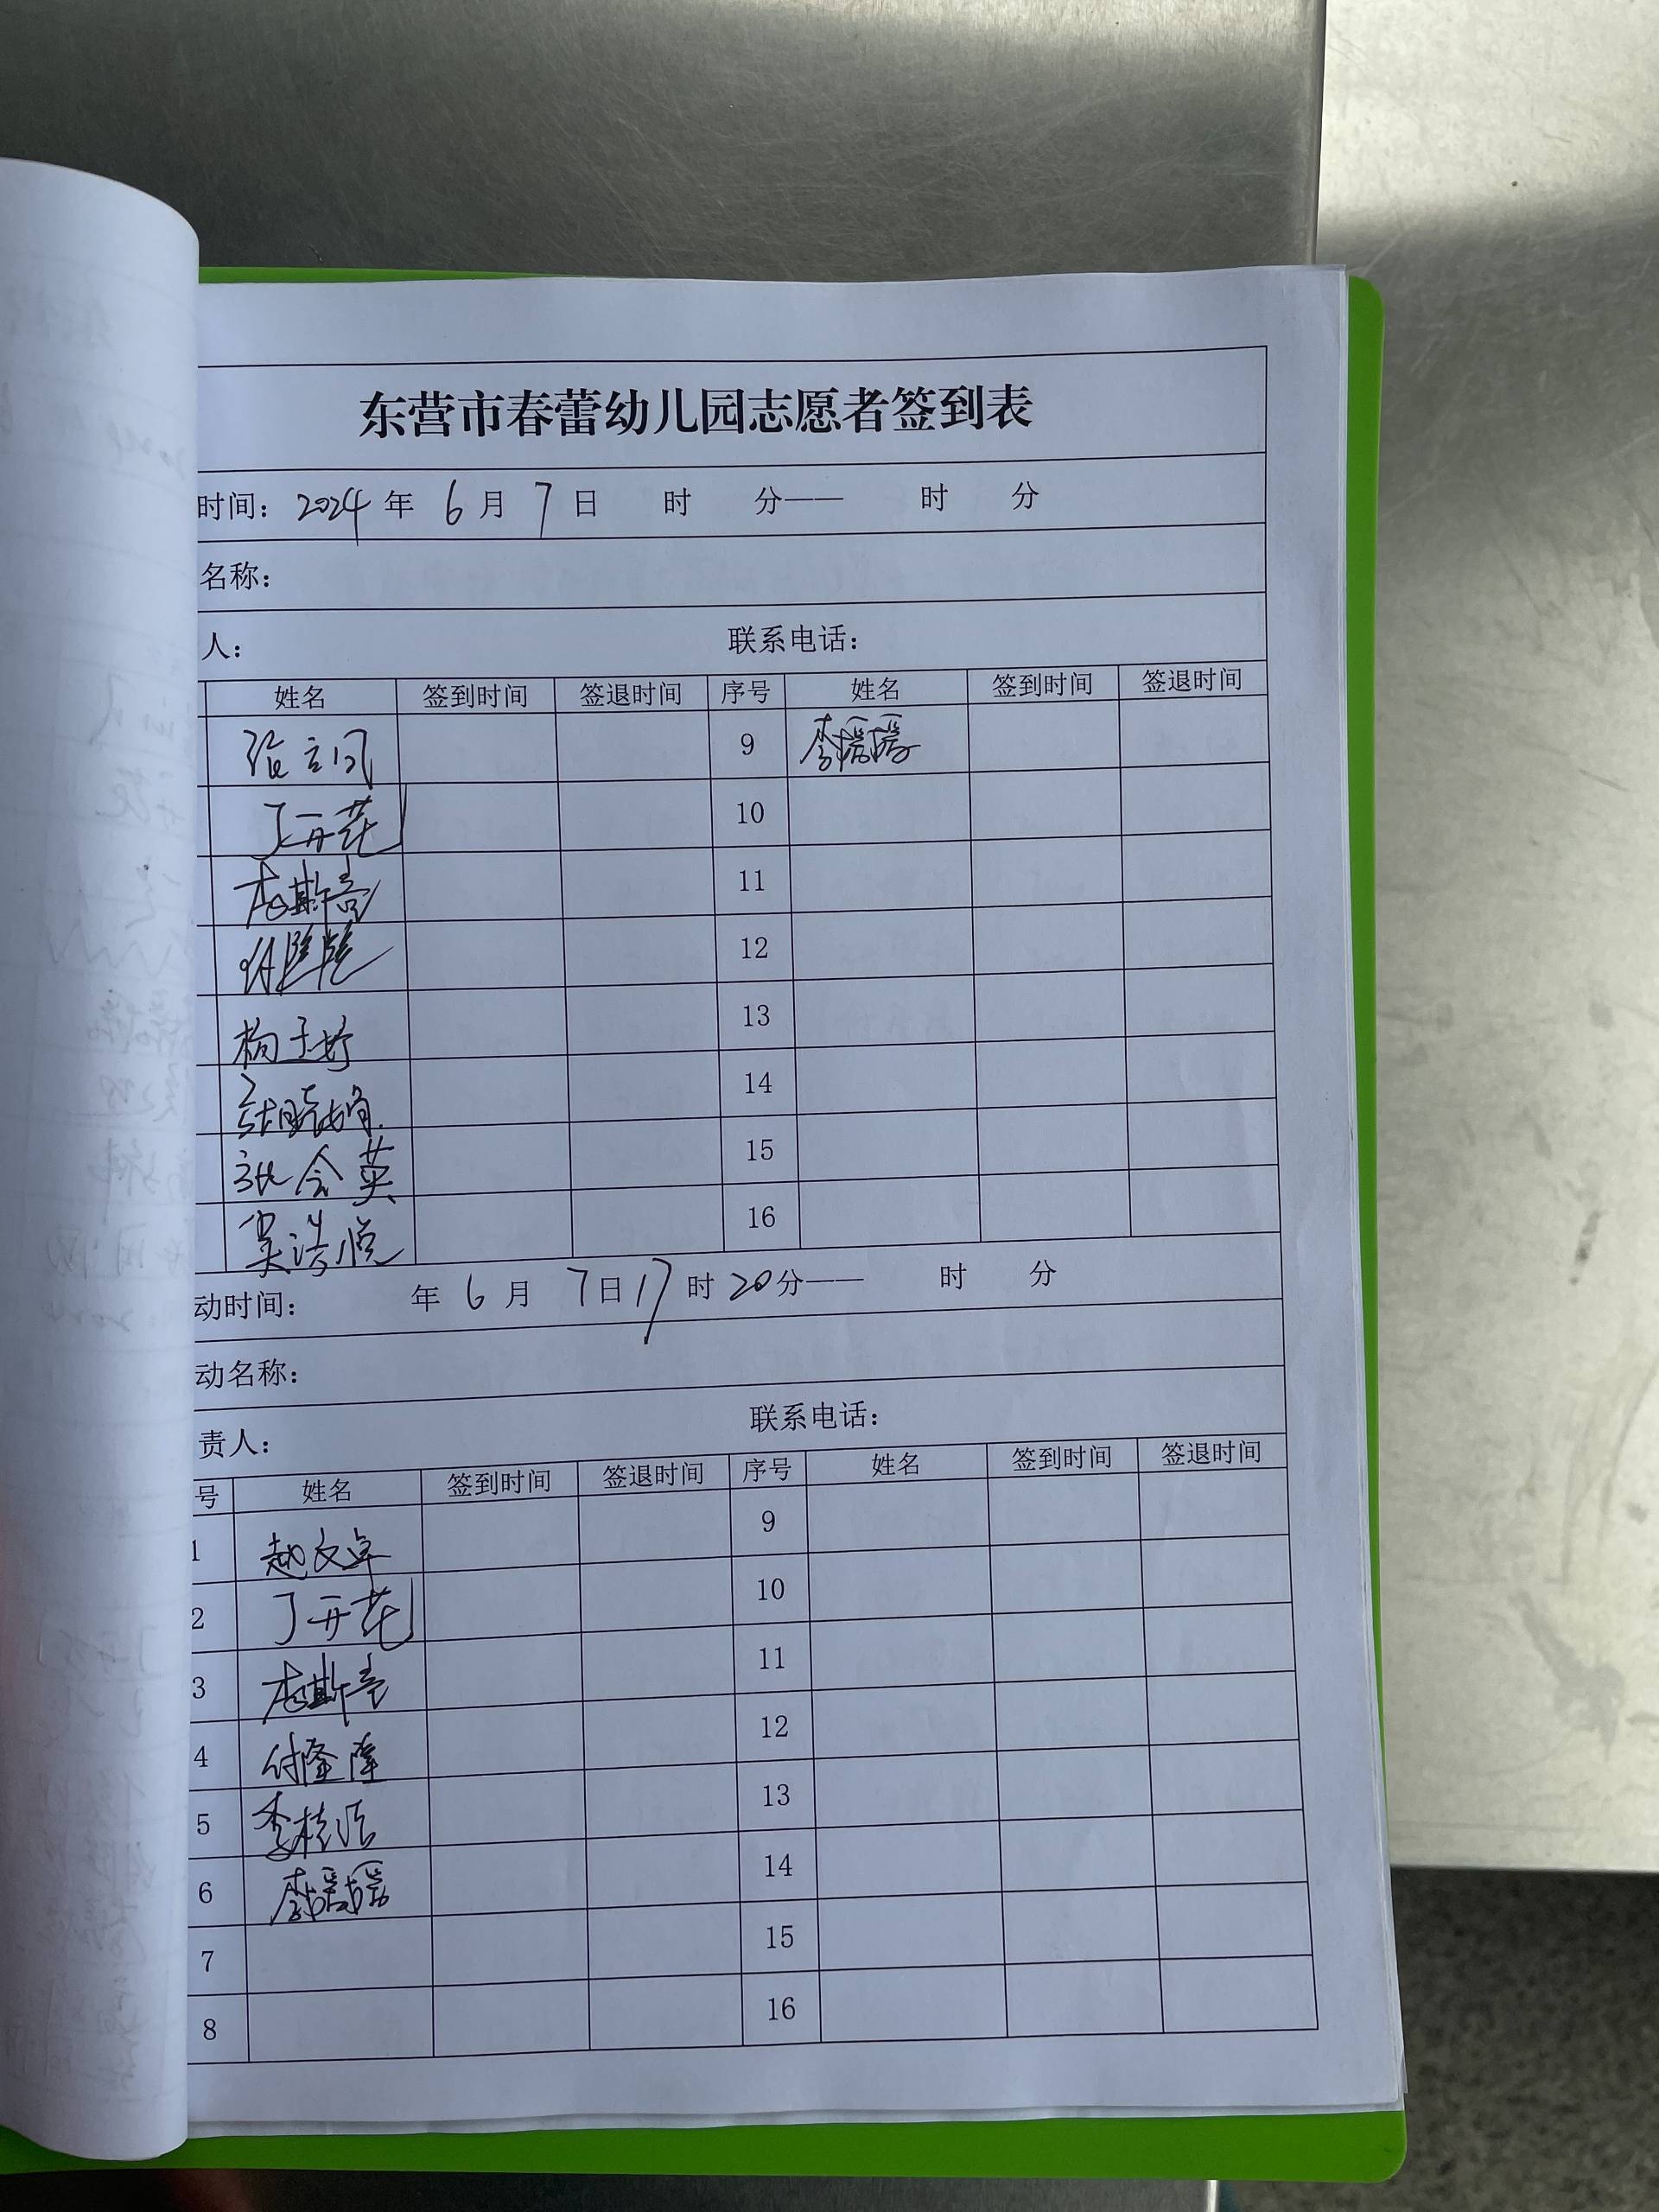 东营市春蕾幼儿园志愿者签到表
时间: 2024 年 6 月 7 日 时 分—— 时 分
名称:
人: 联系电话:
姓名 签到时间 签退时间 序号 姓名 签到时间 签退时间
9 李媛媛
丁开花 10
11
12
杨子婷 13
张晓娟 14
张会英 15
吴浩悦 16
动时间: 年 6 月 7 日 17 时 20 分—— 时 分
动名称:
责人: 联系电话:
号 姓名 签到时间 签退时间 序号 姓名 签到时间 签退时间
1 赵文卓 9
2 丁开花 10
3 11
4 付隆隆 12
5 13
6 李媛媛 14
7 15
8 16